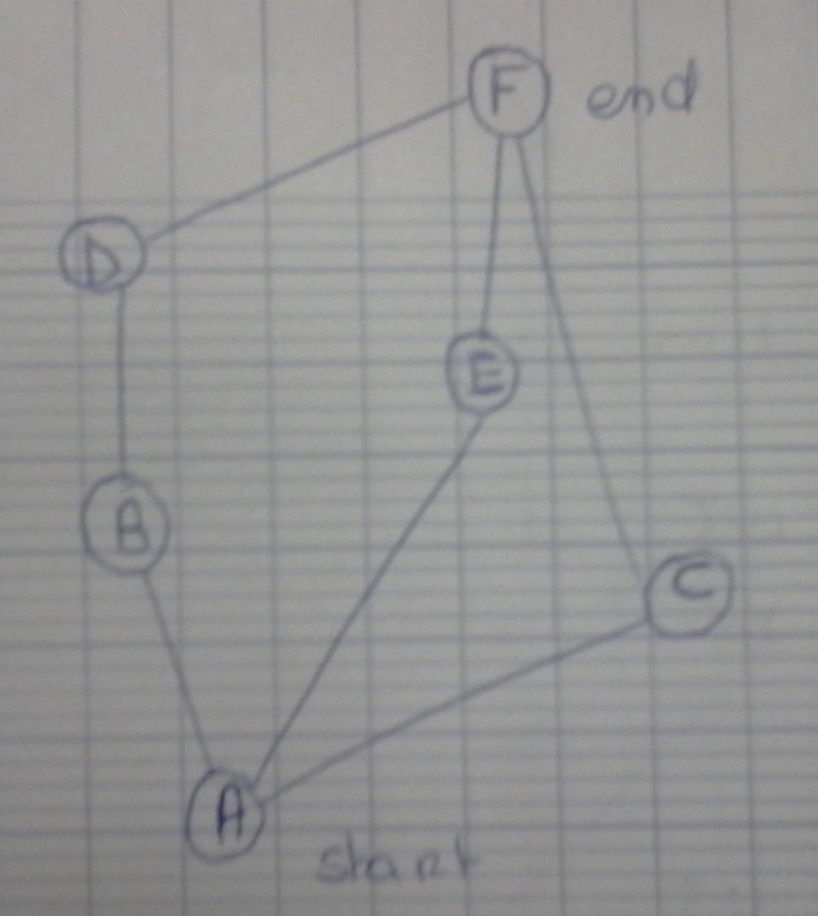 F end
D
E
B
C
A
start